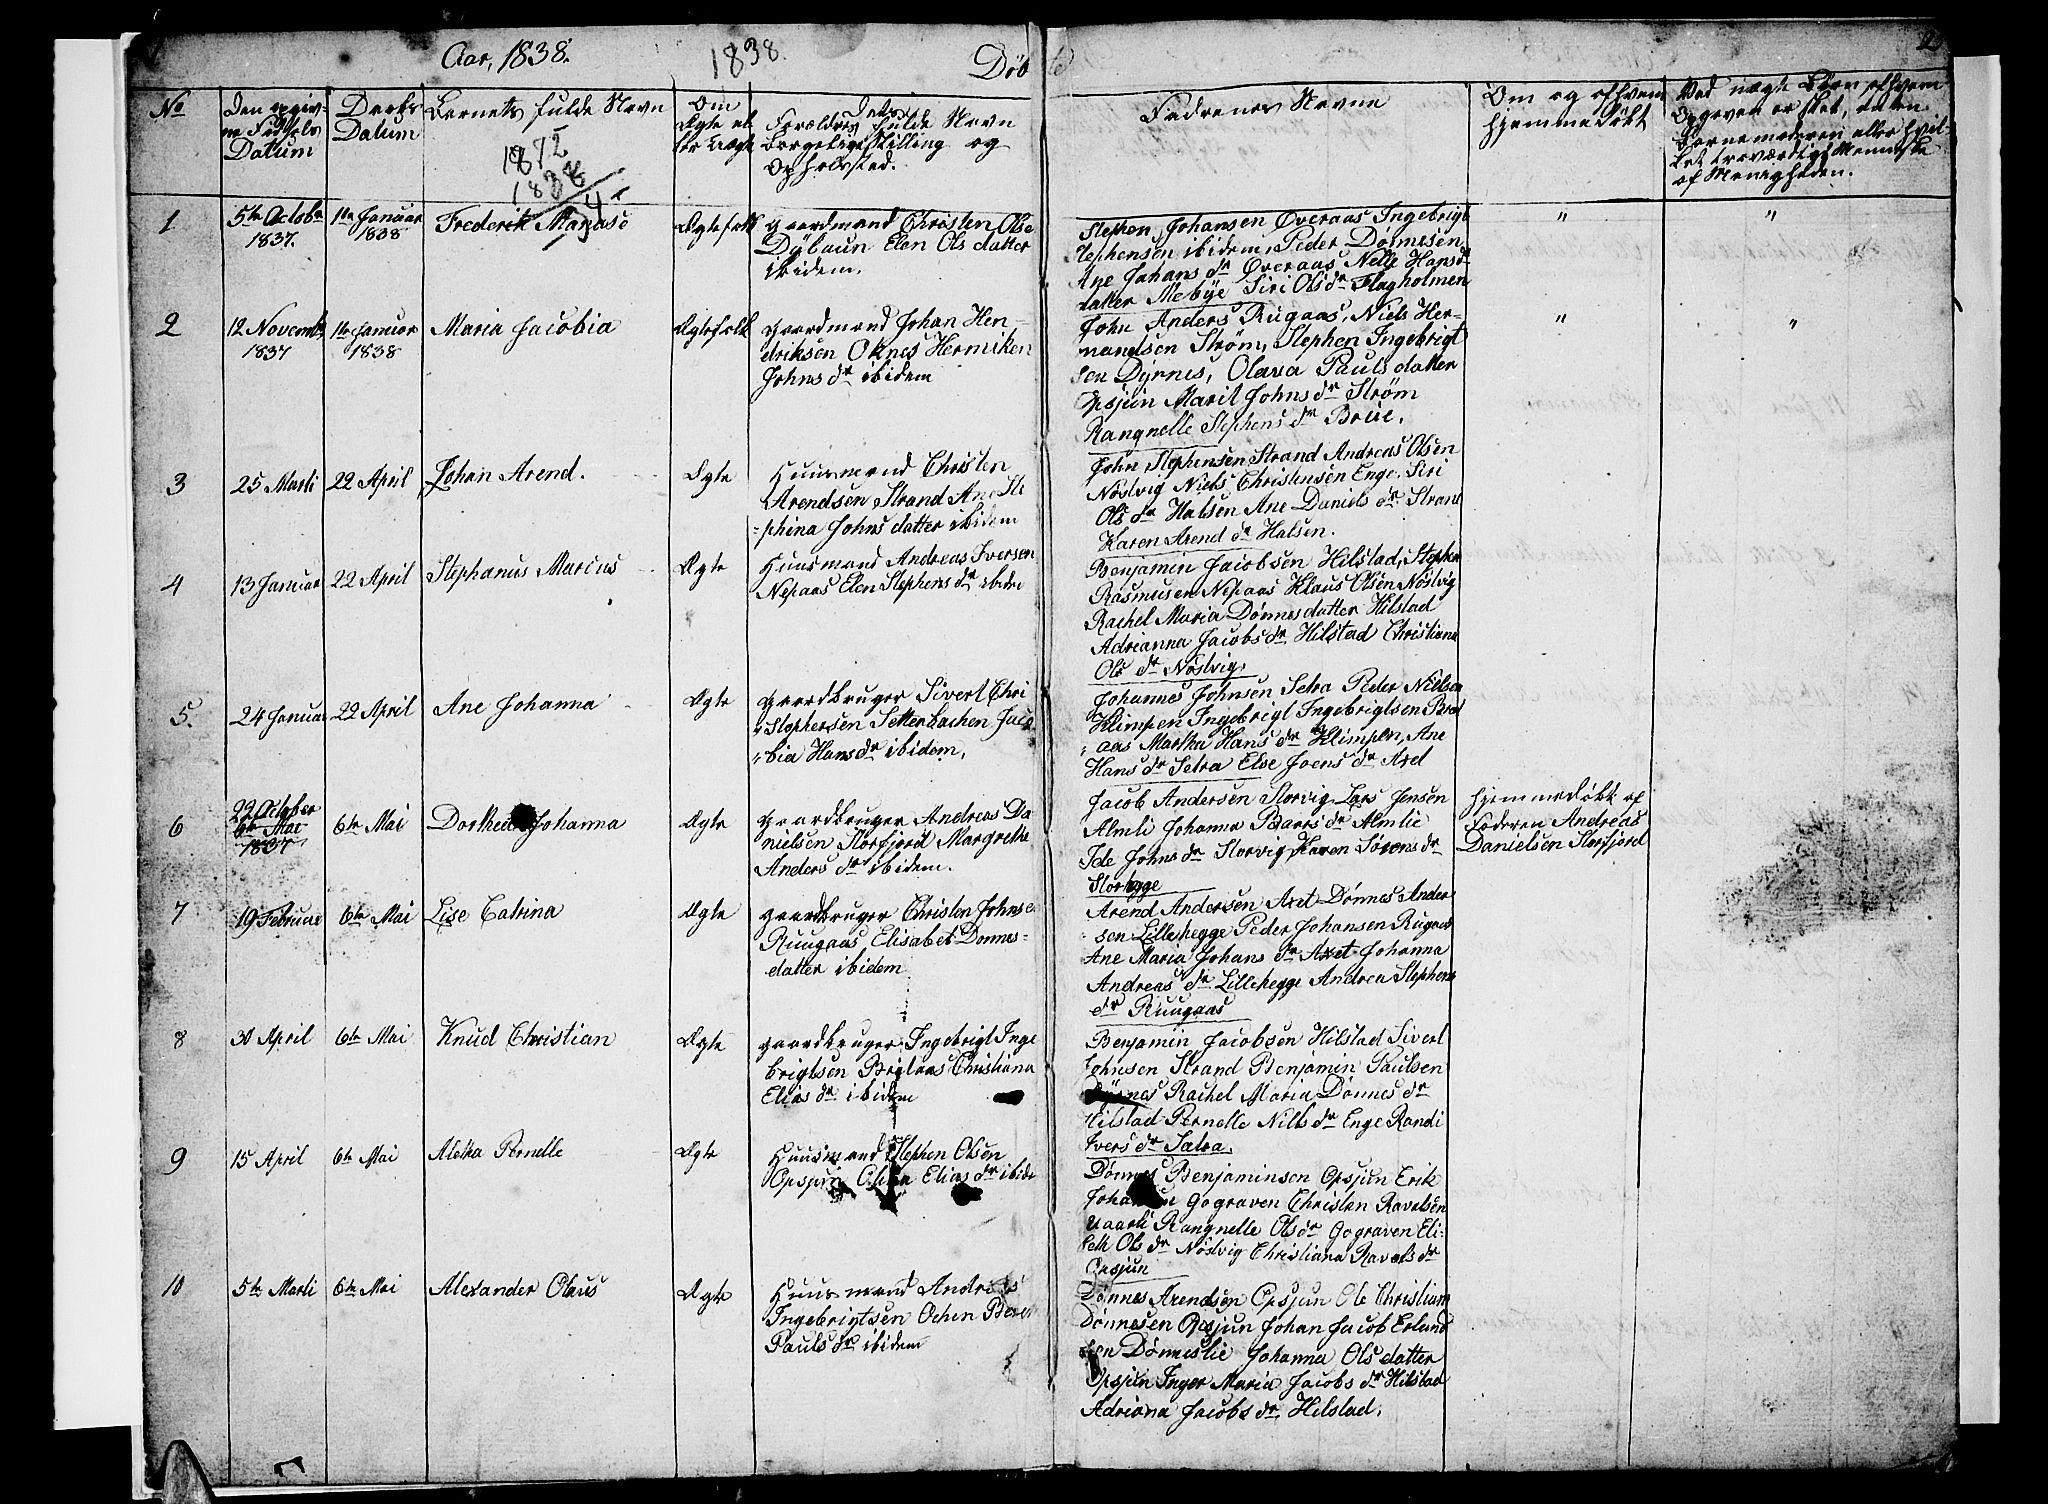 Aar, 1838.
1838.
Døbte
No
Den opgiv-
ne Fødsels
Datum
Daabs
Datum
Barnets fulde Navn
1872
1838
Om
Ægte el-
ler Uægte
Dets
Forældres fulde Navn
borgelige Stilling og
Opholdsted.
Faderenes Navne
Om og af hvem
hjemmedøbt
Ved uægte Børn af hvem
Opgaven er sket, enten
Barnemoderen eller hvil-
ket troværdigt Menneske
af Menigheden.
1
5te Octobr
1837.
1te Januar
1838
Frederik Manase
Ægtefolk
gaardmand Christen Olse
Dyleaun Elen Ols datter
ibidem.
Stephen Johansen Overaas Ingebrigt
Stephensen ibidem, Peder Dønnesen
Ane Johans dr Overaas Nelle Hans d
datter Mebye Siri Ols dr Flagholmen
"
"
2
12 Novemb
1837
1te Januar
1838
Maria Jacobia
Ægtefolk
gaardmand Johan Hen-
driksen Oknes Herniken
Johns dr ibidem
John Anders Rugaas, Niels Her-
nandsen Strøm, Stephen Ingebrigt
sen Dyrnes, Olava Pauls datter
Opsjün Marit Johns dr Strøm
Rangnelle Stephens dr Breie.
"
"
3
25 Marti
22 April
Johan Arend.
Ægte
Huusmand Christen
Arendsen Strand Ane Ste
-phina Johns datter ibidem
John Stephensen Strand Andreas Olsen
Nøstvig Niels Christensen Enge. Siri
Ols dr Halsen Ane Daniels dr Strand
Karen Arend dr Halsen.
4
13 Januar
22 April
Stephanus Marius
Ægte
Huusmand Andreas Iversen
Nesaas Elen Stephens dr ibidm
Benjamin Jacobsen Hilstad, Stephen
Rasmusen Nesaas Klaus Olsen Nøstvig
Rachel Maria Dønnes datter Hilstad
Adrianna Jacobs dr Hilstad Christiana
Ols dr Nøstvig.
5.
24 Januar
22 April
Ane Johanna
Ægte
gaardbruger Sivert Chri
-stophersen Setterbachen Jaco
-bia Hans dr ibidem,
Johannes Johnsen Setra Peder Nielsen
Klimpen Ingebrigt Ingebrigtsen Bred
-aas Martha Hans dr Klimpen, Ane
Hans dr Setra Else Joens dr Axel
6
22 October
6te Mai
1837
6te Mai
Dorthea Johanna
Ægte
gaardbruger Andreas Da
nielsen Storfjord Margrethe
Anders dr ibidem.
Jacob Andersen Storvig Lars Jensen
Almli Johanna Baars dr Almlie
Ide Johns dr Storvig Karen Sørens dr
Storhegge
Hjemmedøbt af
Faderen Andreas
Danielsen Storfjord
7
19 Februar
6te Mai
Lise Catrina
Ægte
gaardbruger Christen Johnse
Ruugaas Elisabet Dønnes-
datter ibidem
Arend Andersen Axet Dønnes Ander
sen Lillehegge Peder Johansen Rugaas
Ane Maria Johans dr Axet Johanna
Andreas dr Lillehegge Andrea Stephens
dr Ruugaas
8
30 April
6te Mai
Knud Christian
Ægte
gaardbruger Ingebrigt Inge
brigtsen Bretaas Christiana
Elias dr ibidem
Benjamin Jacobsen Hilstad Sivert
Johnsen Strand Benjamin Paulsen
Dyrnes Rachel Maria Dønnes dr
Hilstad Pernelle Nills dr Enge Randi
Ivers dr Sætra.
9
15 April
6te Mai
Aletha Pernelle
Ægte
Huusmand Stephen Olsen
Opsjün Elias dr ibidm
Dønnes Benjaminsen Opsjun Erik
Johansen Gograven Christen Ravelsen
Vaarli Rangnelle Ols dr Gograven Eli-
beth Ols dr Nøstvig Christiana Ravels dr
Opsjun
10
5te Marti
6te Mai
Alexander Olaus
Ægte
Huusmand Andreas
Ingebrigtsen Ochen Beret
Pauls dr ibidem
Dønnes Arendsen Opsjun Ole Christian
Dønnesen Opsjun Johan Jacob Erland
sen Dønneslie Johanna Ols datter
Opsjün Inger Maria Jacobs dr Hilstad
Adriana Jacobs dr Hilstad.